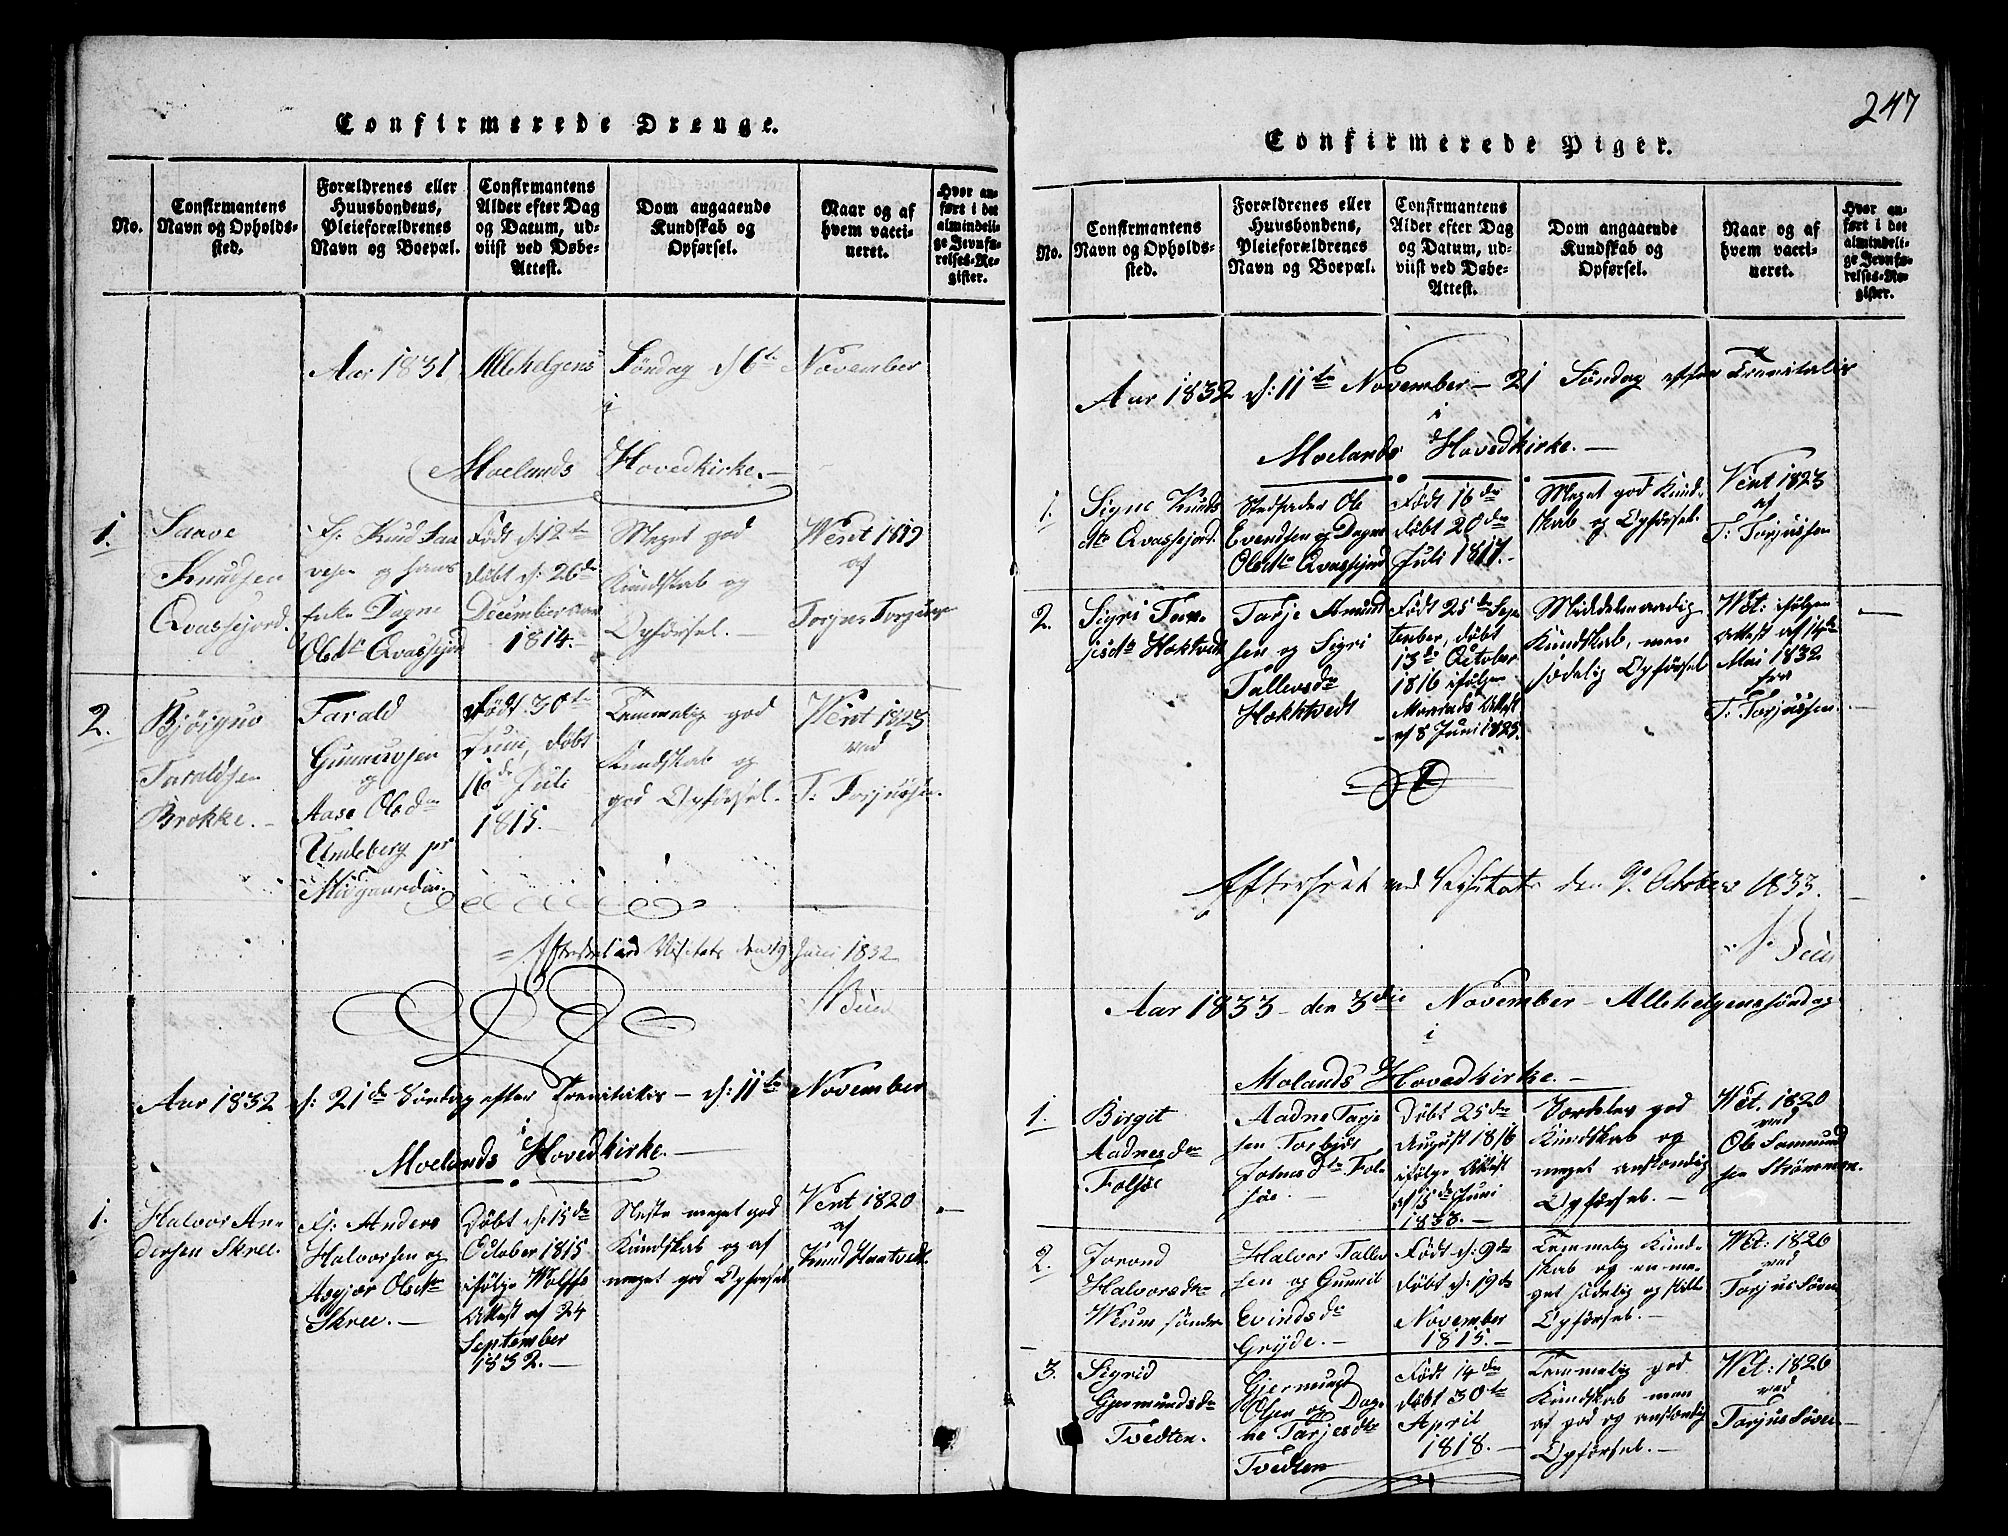 Confirmerede Drenge.
No.
Confirmantens
Navn og Opholds-
sted.
Forældrenes eller
Huusbondens,
Pleieforældrenes
Navn og Boepæl.
Confirmantens
Alder efter Dag
og Datum, ud-
viist ved Døbe-
Attest.
Dom angaaende
Kundskab og
Opførsel.
Naar og af
hvem vacci-
neret.
Hvor an-
ført i det
almindeli-
ge Jevnfø-
relses-Re-
gister.
Aar 1831 Allehelgens Søndag d. 6te November
i
Moelands Hovedkirke.
1.
Saave
Knudsen
Qvassejord.
F: Knud Saa
vesen og hans
enke Dagne
Olsdtr Qvassejord
Født d: 12te
døbt d: 26de
December
1814.
Meget god
Kundskab og
Opførsel.
Vent 1819
af
Torjus Torjusen
2.
Bjørguv
Taraldsen
Brokke.
Tarald
Gunnuvsen
og
Aase Olsdtr
Umleberg
Født 30te
Juni, døbt
16de Juli
1815.
Temmelig god
Kundskab og
god Opførsel.
Vent 1823
ved
T: Torjussen.
Efterseet ved Visitats den 19 Juni 1832
Aar 1832 d: 21de Søndag efter Trenitatis d: 11te November
i
Moelands Hovedkirke.
1.
Halvor An-
dersen Skree.
F: Anders
Halvorsen og
Asgjær Olsdtr
Skree.
Døbt d: 15de
October 1815
ifølge Wolffs
Attest af 24
September
1832.
Næsten meget god
Kundskab og af
meget god Opførsel
Vent 1820
af
Knud Haatvedt.
247
Confirmerede Piger.
No.
Confirmantens
Navn og Opholds-
sted.
Forældrenes eller
Huusbondens,
Pleieforældrenes
Navn og Boepæl.
Confirmantens
Alder efter Dag
og Datum, ud-
viist ved Døbe-
Attest.
Dom angaaende
Kundskab og
Opførsel.
Naar og af
hvem vacci-
neret.
Hvor an-
ført i det
almindeli-
ge Jevnfø-
relses-Re-
gister.
Aar 1832 d: 11te November 21 Søndag efter Trenitatis
i
Moelands Hovedkirke.
1.
Signe Knuds
dtr Qvassejord.
Stedfader Ole
Evendsen og Dagne
Olsdtr Qvassejord
Født 16de
døbt 20de
Juli 1817.
Meget god Kund-
skab og Opførsel.
Vent 1823
af
T: Torjussen
2.
Sigri Tar-
jesdtr Hæktvedt
Tarje Amund
sen og Sigri
Tallevsdtr
Hækktvedt
Født 25de Sep
tember, døbt
13de October
1816 ifølge
Attest
af 8 Juni 1825.
Middelmaadig
Kundskab, men
sædelig Opførsel
Vet: ifølge
Attest af 14de
Mai 1832
fra
T: Torjussen.
Efterseet ved Visitats den 9de October 1833.
Aar 1833 den 3die November Allehelgenssøndag
i
Molands Hovedkirke.
1.
Birgit
Aadnesdtr
Folsøe
Aadne Tarje
sen Torbjør
Folsøe.
Døbt 25de
August 1816
ifølge Attest
af 5de Juni
1833.
Fordeles god
Kundskab og
meget anstændig
Opførsel.
Vet. 1820
ved
Ole Samund
sen Strømmen.
2.
Jorond
Halvorsdtr
Veum søndre
Halvor Tallev
sen og Gunnil
Evindsdtr
Grýde.
Født d: 9de
døbt d: 19de
November
1815.
Temmelig Kund-
skab og en me-
get sædelig og stille
Opførsel.
Vet: 1826
ved
Torjus Søren
3.
Sigrid
Gjermundsdtr
Tvedten.
Gjermund
Olsen og Dag-
ne Tarjesdtr
Tvedten
Født 14de
døbt 30te
April
1818.
Temmelig god
Kundskab men
af god og anstændig
Opførsel.
Vet: 1826
ved
Torjus Søren